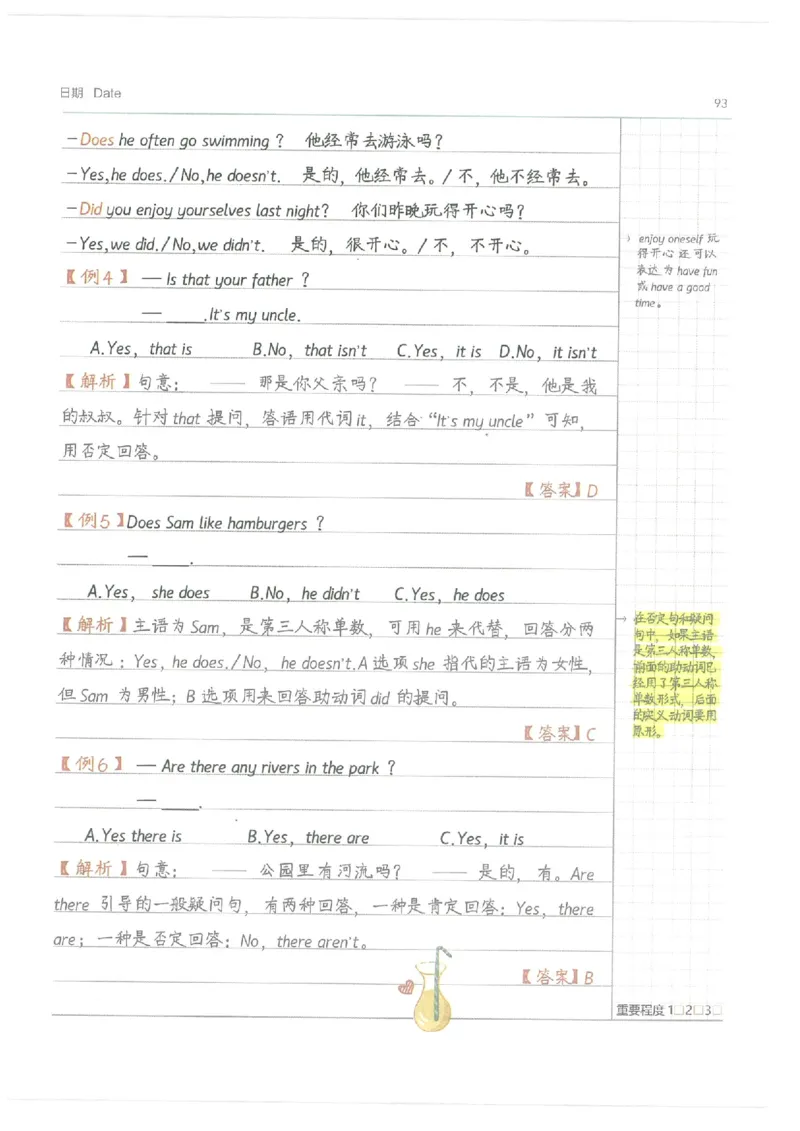 日期 Date
93
-Does he often go swimming？ 他经常去游泳吗？
-Yes,he does./No,he doesn't. 是的，他经常去。/不，他不经常去。
-Did you enjoy yourselves last night? 你们昨晚玩得开心吗？
-Yes,we did./No,we didn't. 是的，很开心。/不，不开心。
【例4】 — Is that your father？
— ____.It's my uncle.
A.Yes，that is B.No，that isn't C.Yes，it is D.No，it isn't
【解析】句意：—— 那是你父亲吗？ —— 不，不是，他是我
的叔叔。针对that 提问，答语用代词it，结合“It's my uncle”可知，
用否定回答。
【答案】D
【例5】Does Sam like hamburgers？
— ____.
A.Yes， she does B.No，he didn't C.Yes，he does
【解析】主语为 Sam，是第三人称单数，可用 he 来代替，回答分两
种情况：Yes，he does./No，he doesn't.A 选项she 指代的主语为女性，
但 Sam 为男性；B 选项用来回答助动词 did 的提问。
【答案】C
【例6】 — Are there any rivers in the park？
— ____.
A.Yes there is B.Yes，there are C.Yes，it is
【解析】句意：—— 公园里有河流吗？ —— 是的，有。Are
there 引导的一般疑问句，有两种回答，一种是肯定回答：Yes，there
are；一种是否定回答：No，there aren't。
【答案】B
enjoy oneself 玩
得开心 还可以
表达 为 have fun
或 have a good
time。
在否定句和疑问
句中，如果主语
是第三人称单数，
前面的助动词已
经用了第三人称
单数形式，后面
的实义动词要用
原形。
重要程度 1□2□3□